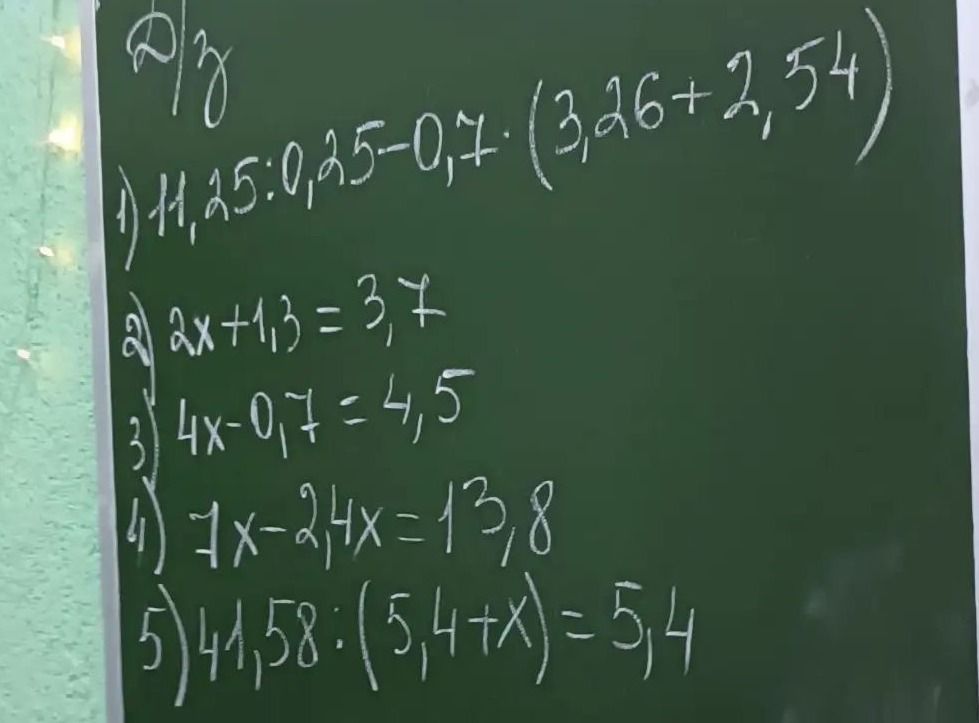 Д/з
1) 11,25:0,25-0,7·(3,26+2,54)
2) 2x+1,3=3,7
3) 4x-0,7=4,5
4) 7x-2,4x=13,8
5) 41,58:(5,4+x)=5,4